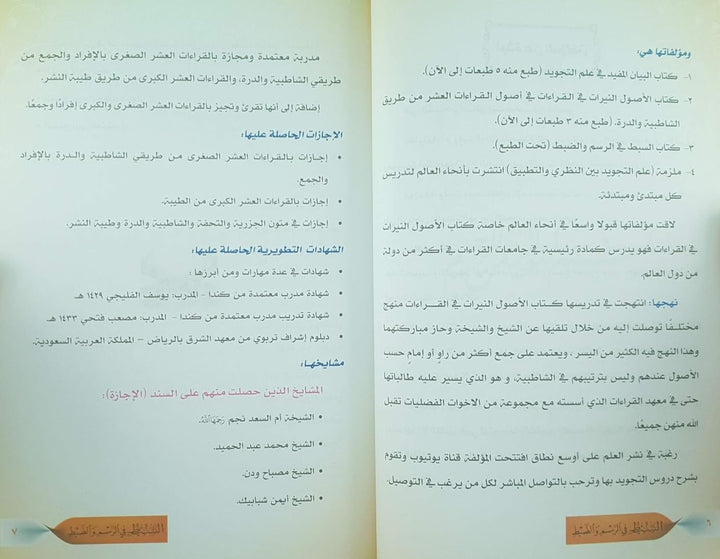 ومؤلفاتها هي:
١- كتاب البيان المفيد في علم التجويد (طبع منه ٥ طبعات إلى الآن).
٢- كتاب الأصول النيرات في القراءات في أصول القراءات العشر من طريق
الشاطبية والدرة. (طبع منه ٣ طبعات إلى الآن).
٣- كتاب السبط في الرسم والضبط (تحت الطبع).
٤- ملزمة (علم التجويد بين النظري والتطبيق) انتشرت بأنحاء العالم لتدريس
كل مبتدئ ومبتدئة.
لاقت مؤلفاتها قبولا واسعًا في أنحاء العالم خاصة كتاب الأصول النيرات
في القراءات فهو يدرس كمادة رئيسية في جامعات القراءات في أكثر من دولة
من دول العالم.
نهجها: انتهجت في تدريسها كتاب الأصول النيرات في القراءات منهج
مختلفًا توصلت إليه من خلال تلقيها عن الشيخ والشيخة وحاز مباركتهما
وهذا النهج فيه الكثير من اليسر، ويعتمد على جمع أكثر من راوٍ أو إمام حسب
الأصول عندهم وليس بترتيبهم في الشاطبية، و هو الذي يسير عليه طالباتها
حتى في معهد القراءات الذي أسسته مع مجموعة من الاخوات الفضليات تقبل
الله منهن جميعًا.
رغبة في نشر العلم على أوسع نطاق افتتحت المؤلفة قناة يوتيوب وتقوم
بشرح دروس التجويد بها وترحب بالتواصل المباشر لكل من يرغب في التوصيل.
٦ السبط في الرسم والضبط
مدربة معتمدة ومجازة بالقراءات العشر الصغرى بالإفراد والجمع من
طريقي الشاطبية والدرة، والقراءات العشر الكبرى من طريق طيبة النشر.
إضافة إلى أنها تقرئ وتجيز بالقراءات العشر الصغرى والكبرى إفرادًا وجمعًا.
الإجازات الحاصلة عليها:
• إجازات بالقراءات العشر الصغرى من طريقي الشاطبية والدرة بالإفراد
والجمع.
• إجازات بالقراءات العشر الكبرى من الطيبة.
• إجازات في متون الجزرية والتحفة والشاطبية والدرة وطيبة النشر.
الشهادات التطويرية الحاصلة عليها:
• شهادات في عدة مهارات ومن أبرزها :
• شهادة مدرب معتمدة من كندا - المدرب: يوسف الفليجي ١٤٢٩ هـ
• شهادة تدريب مدرب معتمدة من كندا - المدرب: مصعب فتحي ١٤٣٣ هـ
• دبلوم إشراف تربوي من معهد الشرق بالرياض – المملكة العربية السعودية.
مشايخها:
المشايخ الذين حصلت منهم على السند (الإجازة):
• الشيخة أم السعد نجم رحمها الله.
• الشيخ محمد عبد الحميد.
• الشيخ مصباح ودن.
• الشيخ أيمن شبابيك.
السبط في الرسم والضبط ٧